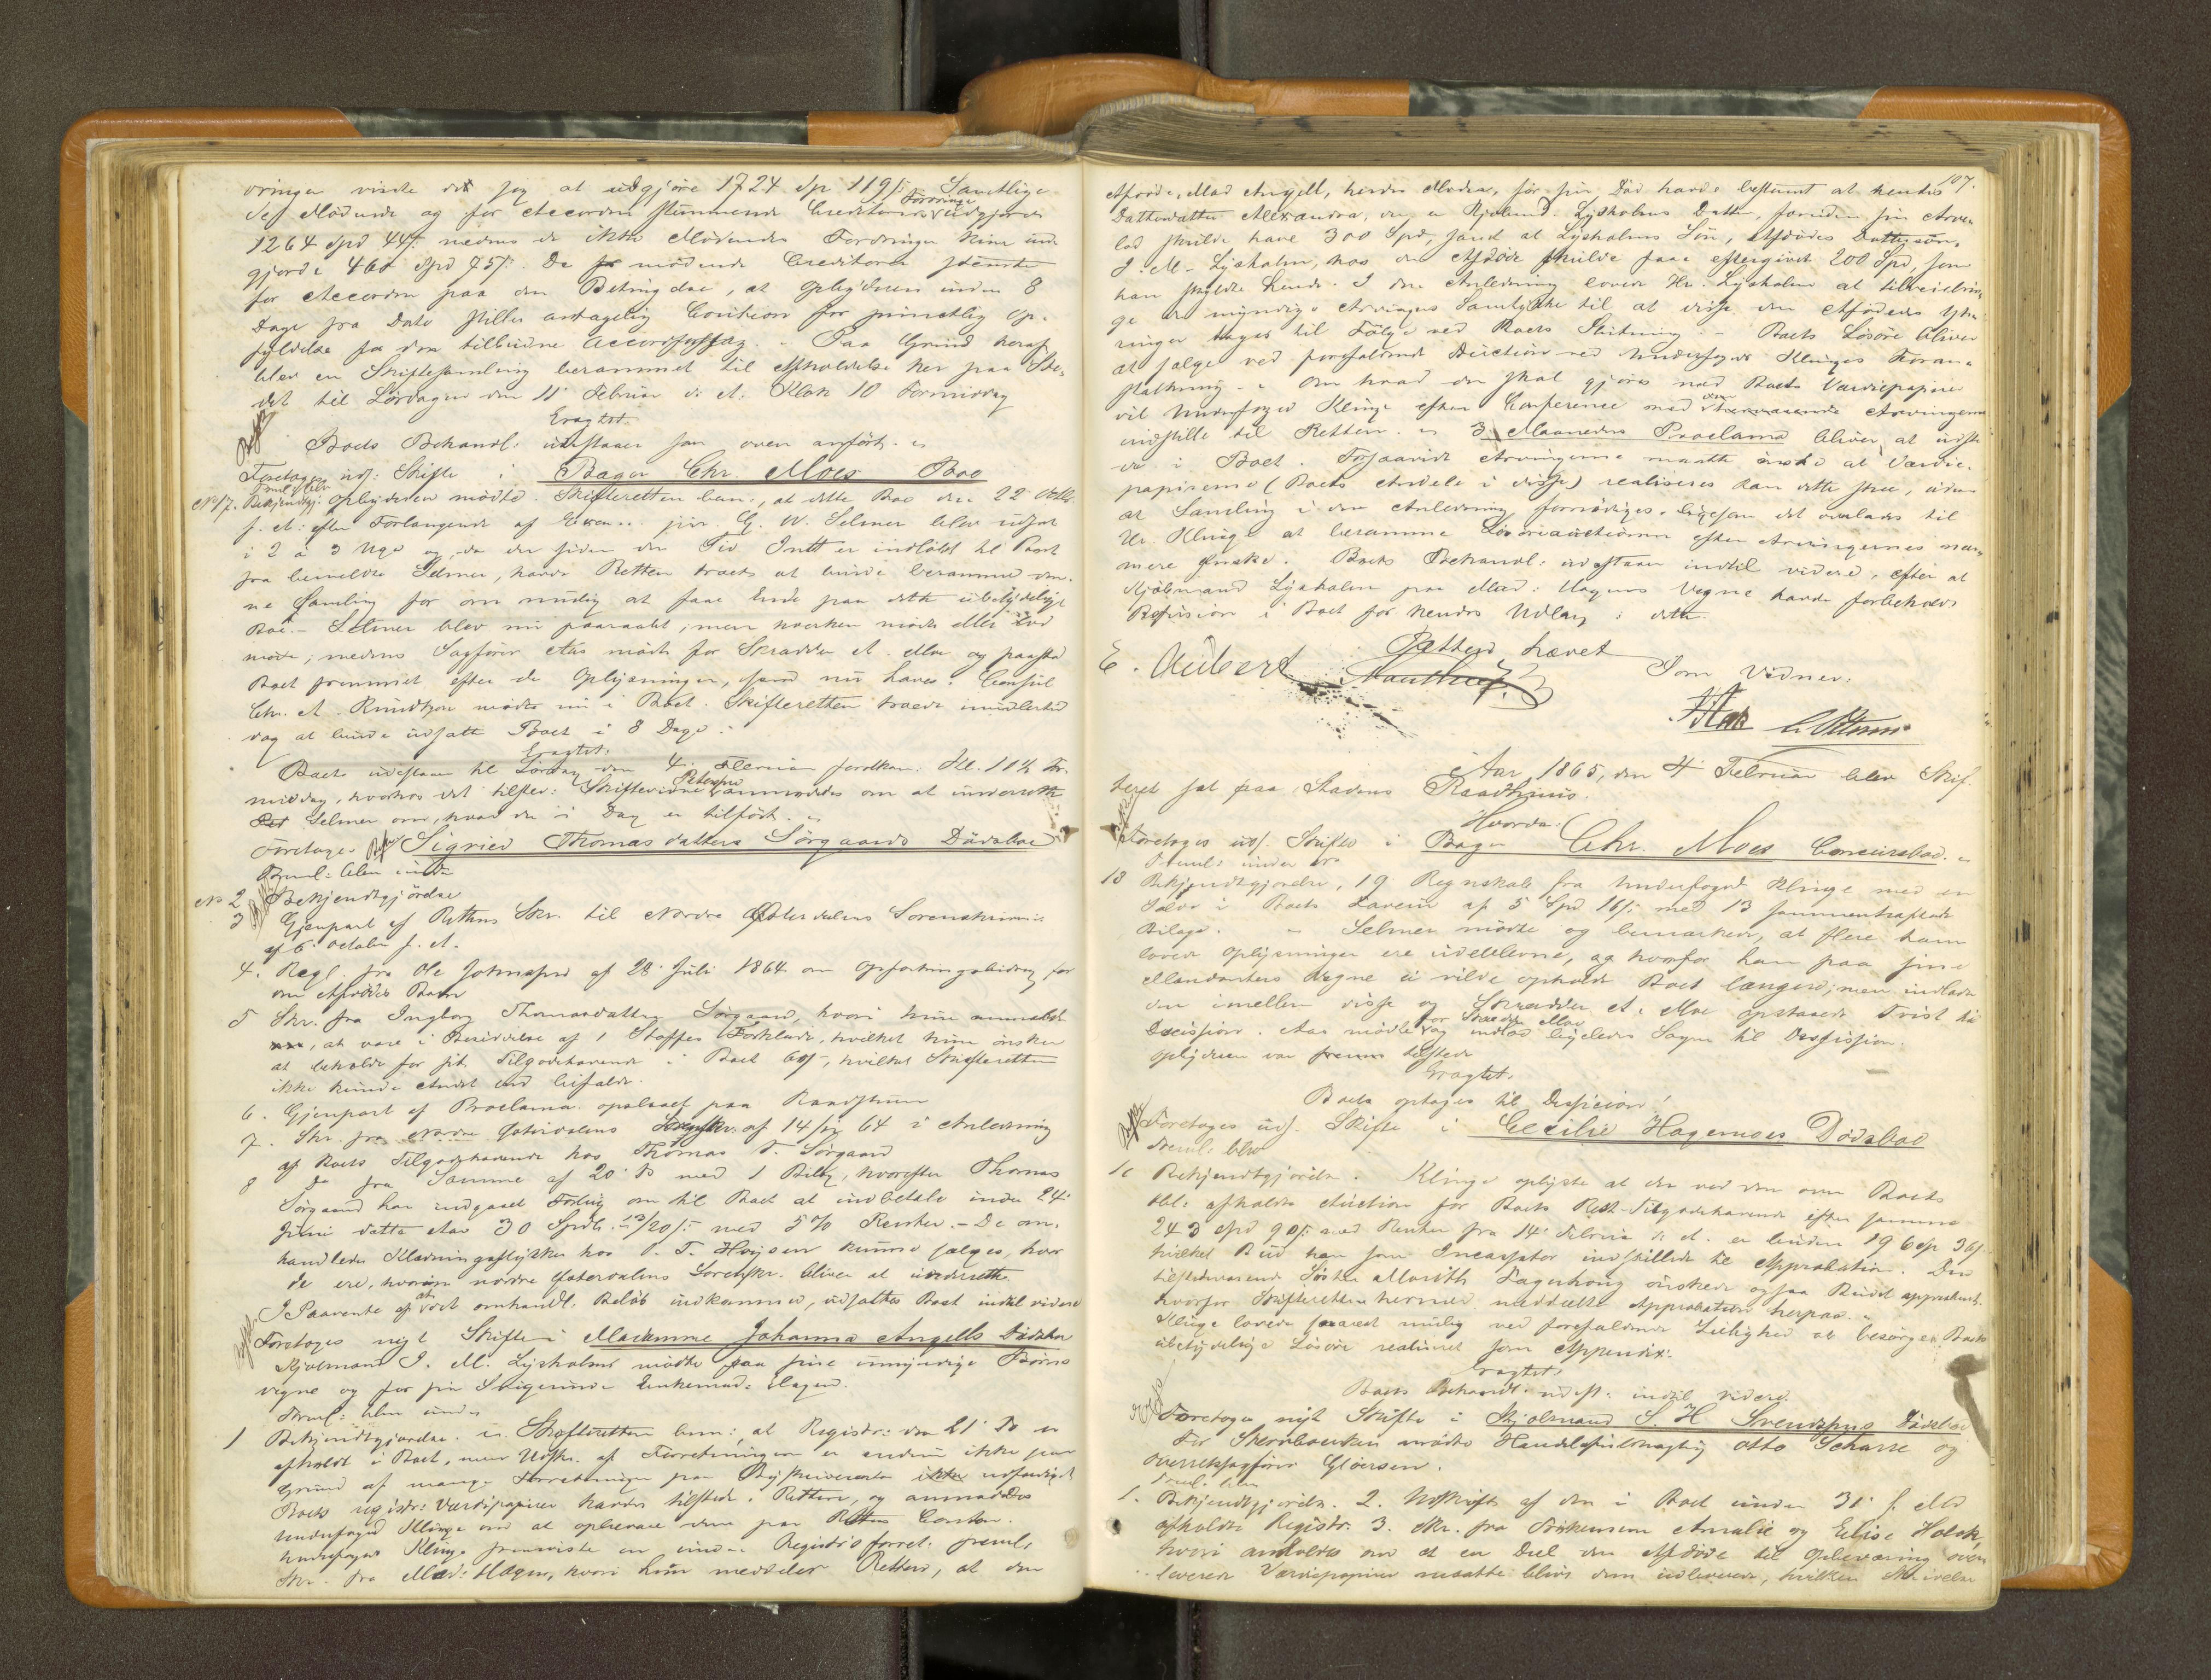 vringer viste det sig at udgjøre 1724 Sp 119 ß. Samtlige
des Mødende og for Accorden stemmende Creditorers Fordringer udgjorde
1264 Spd 44 ß medens de ikke Mødendes Fordringer kun ud-
gjorde 460 Spd 75 ß. De mødende Creditorer stemte
for Accorden paa den Betingelse, at Opbyderen inden 8
Dage fra Dato stiller antagelig Caution for punctlig Op-
fyldelse fra den tilbudne Accordsforslag. - Paa Grund heraf
blev en Skiftesamling berammet til Afholdelse her paa Ste-
det til Løverdagen den 11 Februar d: A. Klok 10 Formiddag
Eragtet
Boets Behandl: udstaaer som oven anført.
Foretages uds: Skifte i Bager Chr. Moes Bo
Freml: blev
No 17. Bekjendtgj: Opbyderen mødte. Skifteretten bem:, at dette Bo den 22 Octbr
f. A: efter Forlangende af G. W. Selmer blev udsat
i 2 a 3 Uger og, da der siden den Tid Intet er indløbet til Boet
fra bemeldte Selmer, havde Retten troet at burde beramme den-
ne Samling for om mulig at faae Ende paa dette ubetydelige
Bo. - Selmer blev nu paaraabt, men hverken mødte eller lod
møde; medens Sagfører Aas mødte for Skrædder A. Moe og paastod
Boet fremmet efter de Oplysninger, som nu haves. Consul
Chr. A. Rundtzow mødte nu i Boet. Skifteretten troede imidlertid
dog at burde udsætte Boet i 8 Dage.
Eragtet.
Boets udestaaer til Lørdag den 4 Februar førstkom: Kl. 11½ For-
middag, hvorhos det tilstev: Skiftevidne Petersen anmodedes om at underrette
Selmer om, hvad der i Dag er tilført.
Foretages Sigried Thomasdatters Sørgaards Dødsbo
Freml: blev under
No 2 Bekjendtgjørelse
3 Gjenpart af Rettens Skr. til Nordre Østerdalens Sorenskriver
af 6 October f. A.
4. Regl. fra Ole Johnsen af 28 Juli 1864 om Opfostringsbidrag for
den Afdødes Barn
5 Skr. fra Ingborg Thomasdatter Sørgaard, hvori hun anmeldte
at være i Besiddelse af 1 Stoffes Forklæde, hvilket hun ønsker
at beholde for sit Tilgodehavende i Boet 60 ß, hvilket Skifteretten
ikke kunde Andet end bifalde.
6. Gjenpart af Proclama opslaaet paa Raadstuen
7. Skr. fra Nordre Østerdalens Sorenskr. af 14/12 64 i Anledning
af Boets Tilgodehavende hos Thomas T. Sørgaard
8 Do fra Samme af 20 Do med 1 Bilag, hvorefter Thomas
Sørgaard har indgaaet Forlig om til Boet at indbetale inden 24
Juni dette Aar 30 Spdlr. 13/20 ß med 5% Renter. - De om-
handlede Klædningsstykker hos O. T. Hoijsen kunne sælges, hvor
de ere, hvorom nordre Østerdalens Sorenskr. bliver at underrette.
I Paavente af at det omhandl. Beløb indkommer, udsættes Boet indtil videre
Foretages nyt Skifte i Madamme Johanna Angells Dødsbo
Kjøbmand J. M. Lysholm mødte paa sine umyndige Børns
vegne og for sin Svigerinde Enkemad: Hagen.
Freml: blev under
1 Bekjendtgjørelse. Skifteretten bem:, at Registr: den 21 Do er
afholdt i Boet, men Udskr. af Forretningen er endnu ikke paa
Grund af mange Forretninger paa Byskriveriet udfærdiget
Boets registr: Værdipapirer havdes tilstede i Retten, og anmodedes
Underfoged Klinge om at opbevare dem paa Rettens Contor.
Underfoged Klinge fremviste en under Registr:forret. freml.
Skr. fra Mad: Hagen, hvori hun meddeler Retten, at den
107.
Afdøde, Mad Angell, hendes Moder, før sin Død havde bestemt at hendes
Datterdatter Alexandra, der er Kjøbmd. Lysholms Datter, foruden sin Arve-
lod skulde have 300 Spd, samt at Lysholms Søn, Afdødes Dattersøn,
J. M. Lysholm, hos den Afdøde skulde faae eftergivet 200 Spd, som
han skyldte hende. I den Anledning lovede Hr. Lysholm at tilveiebrin-
ge de myndige Arvinges Samtykke til at disse den Afdødes Ytt-
ringer tages til Følge ved Boets Slutning. - Boets Løsøre bliver
at sælge ved forefaldende Auction ved Underfoged Klinges Foran-
staltning. - Om hvad der skal gjøres med Boets Værdiepapirer
vil Underfoged Klinge efter Conference med Arvingerne
indstille til Retten. 3 Maaneders Proclama bliver at udste-
de i Boet. Forsaavidt Arvingerne maatte ønske at Værdie-
papirerne (Boets Andele i disse) realiseres kan dette skee, uden
at Samling i den Anledning fornødiges, ligesom det overlades til
Hr. Klinge at beramme Løsøreauctionen efter Arvingernes nær-
mere Ønske. Boets Behandl: udstaaer indtil videre, efter at
Kjøbmand Lysholm paa Mad: Hagens Vegne havde forbeholdt
Refusion i Boet for hendes Udlæg i dette.
Retten hævet
E. Aubert
Som Vidner:
Aar 1865, den 4 Februar blev Skif-
teret sat paa Stadens Raadhuus.
Hvorda:
Foretages uds. Skifte i Bager Chr. Moes Concursbo.
Freml: under No
18 Bekjendtgjørelse, 19 Regnskab fra Underfoged Klinge med en
Saldo i Boets Faveur af 5 Spd 16 ß med 13 sammenhæftede
Bilage. - Selmer mødte og bemærkede, at flere ham
lovede Oplysninger ere udeblevne, og hvorfor han paa sine
Mandanters Vegne ei vilde opholde Boet længere; men indlod
den imellem disse og Skrædder A. Moe opstaaede Tvist til
Decission. Aas mødte for Skrædder Moe og indlod ligeledes Sagen til Decission.
Opbyderen var tilstede
Eragtet.
Boets optages til Decision!
Foretages uds. Skifte i Cecilie Hagemoes Dødsbo
Freml: blev
10 Bekjendtgjørelse. Klinge oplyste at der ved den over Boets
afholdte Auction for Boets Rest-Tilgodehavende efter samme
243 Spd 90 ß med Renter fra 14 Februar d. A. er buden 196 Sp 36 ß
hvilket Bud han som Incassator indstillede til Approbation. Den
tilstedeværende Søster Marith Hagenhoug ønskede ogsaa Budet approberet,
hvorfor Skifteretten hermed meddeelte Approbation herpaa.
Klinge lovede snarest mulig ved forefaldende Leilighed at besørge Boets
ubetydelige Løsøre realiseret som Appendix.
Eragtet.
Boets Behandl: udst: indtil videre.
Foretages nyt Skifte i Kjøbmand S. H. Svendsens Dødsbo
For Stervboenken mødte Handelsfuldmægtig Otto Scharre og
Overretssagfører Gløersen.
Freml: blev
1. Bekjendtgjørelse. 2. Udskrift af den i Boet under 31 f. Md
afholdte Registr. 3. Skr. fra Frøknerne Amalie og Elise Holck,
hvori anholdes om at en Deel den Afdøde til Opbevaring over-
leverede Værdiepapirer maatte blive dem udleverede, hvilken Skrivelse